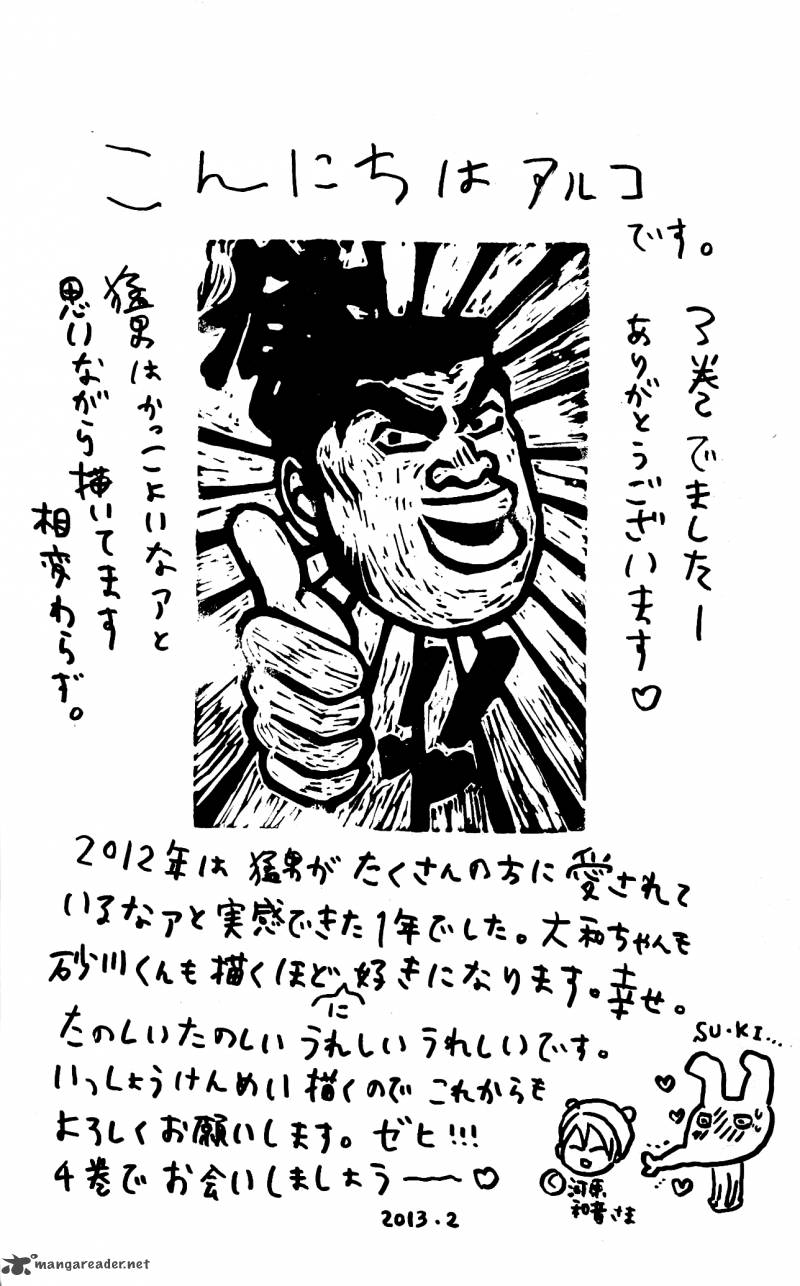 こんにちは アルコ
です。
3巻でましたー
ありがとうございます♡
猛男はかっこよいなァと
思いながら描いてます
相変わらず。
2012年は 猛男が たくさんの方に 愛されて
いるなァと 実感できた 1年でした。大和ちゃんも
砂川くんも 描くほどに好きになります。幸せ。
たのしいたのしい うれしい うれしいです。
いっしょうけんめい 描くので これからも
よろしく お願いします。ゼヒ!!!
4巻で お会いしましょう――♡
SU・KI...
©河原
和音さま
2013.2
mangareader.net